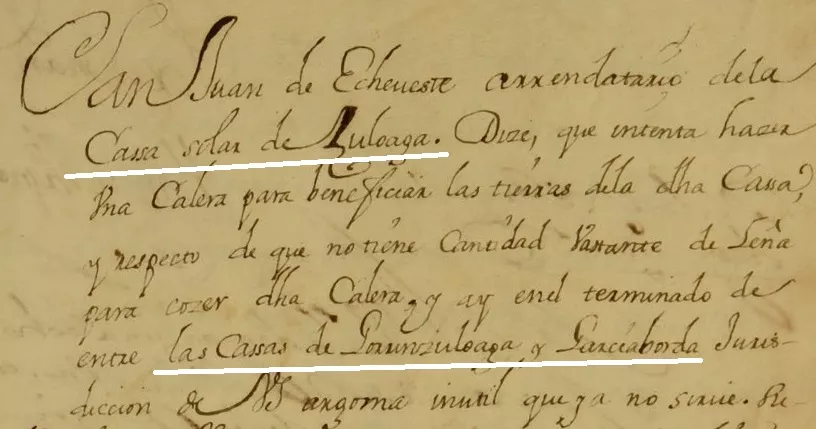 San Juan de Echeveste arrendatario dela
Cassa solar de Zuloaga. Dize, que intenta hazer
Vna Calera para beneficiar las tierras dela dha Cassa,
y respecto de que no tiene Cantidad Vastante de Leña
para cozer dha Calera, y ay enel terminado de
entre las Cassas de Torrunzuloaga y Garciaborda Juris-
diccion de argoma inutil que ya no sirue.